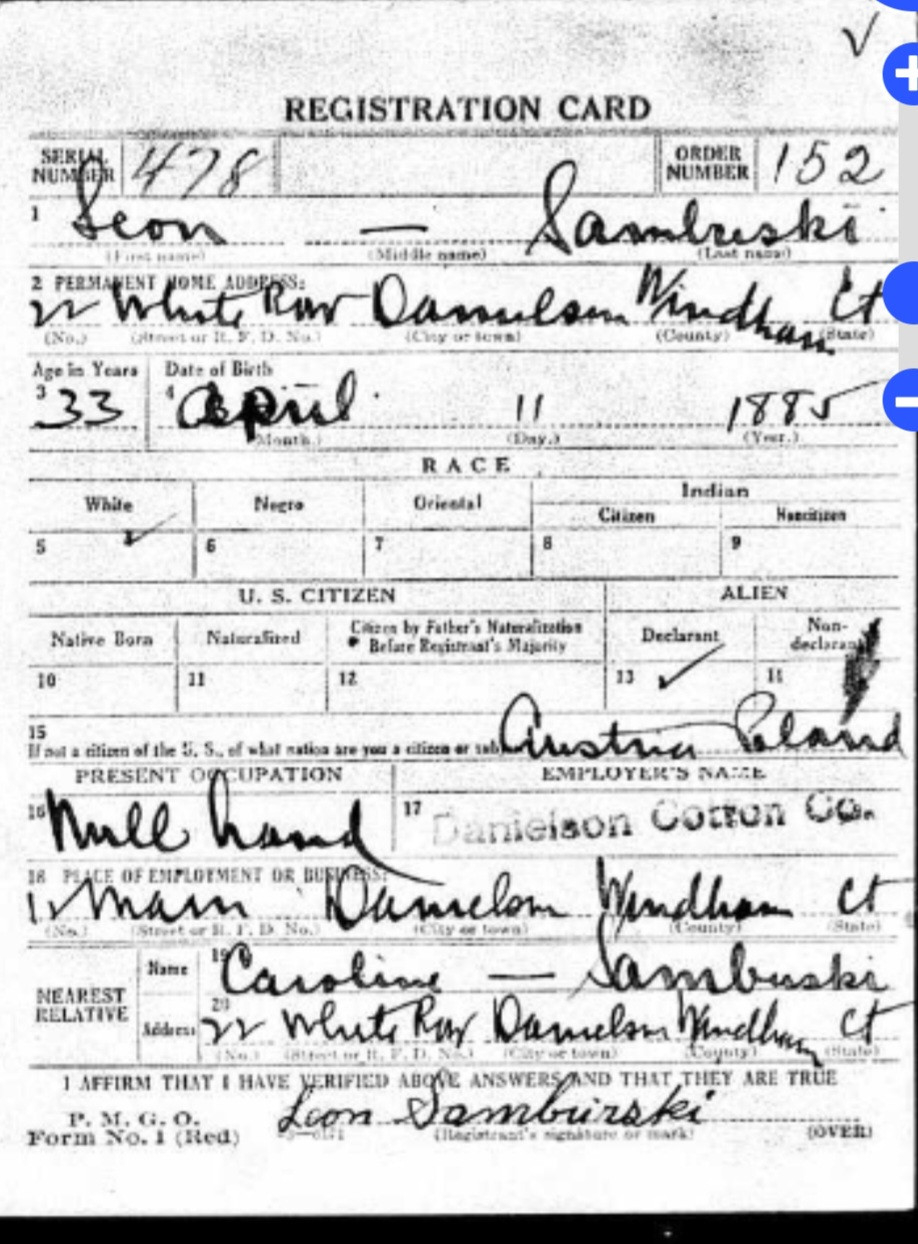 REGISTRATION CARD
SERIAL NUMBER 478 ORDER NUMBER 152
1 Leon — Sambreski
(First name) (Middle name) (Last name)
2 PERMANENT HOME ADDRESS:
22 White Row Danielson Windham Ct
(No.) (Street or R. F. D. No.) (City or town) (County) (State)
Age in Years Date of Birth
3 33 4 April 11 1885
(Month.) (Day.) (Year.)
RACE
White Negro Oriental Indian
Citizen Noncitizen
5 ✓ 6 7 8 9
U. S. CITIZEN ALIEN
Native Born Naturalized Citizen by Father's Naturalization Before Registrant's Majority Declarant Non-declarant
10 11 12 13 ✓ 14
15
If not a citizen of the U. S., of what nation are you a citizen or Austria Poland
PRESENT OCCUPATION EMPLOYER'S NAME
16 Mill hand 17 Danielson Cotton Co.
18 PLACE OF EMPLOYMENT OR BUSINESS:
Main Danielson Windham Ct
(No.) (Street or R. F. D. No.) (City or town) (County) (State)
NEAREST RELATIVE Name 19 Caroline — Sambuski
Address 20 22 White Row Danielson Windham Ct
(No.) (Street or R. F. D. No.) (City or town) (County) (State)
I AFFIRM THAT I HAVE VERIFIED ABOVE ANSWERS AND THAT THEY ARE TRUE
P. M. G. O. Leon Samburski
Form No. 1 (Red) (Registrant's signature or mark) (OVER)